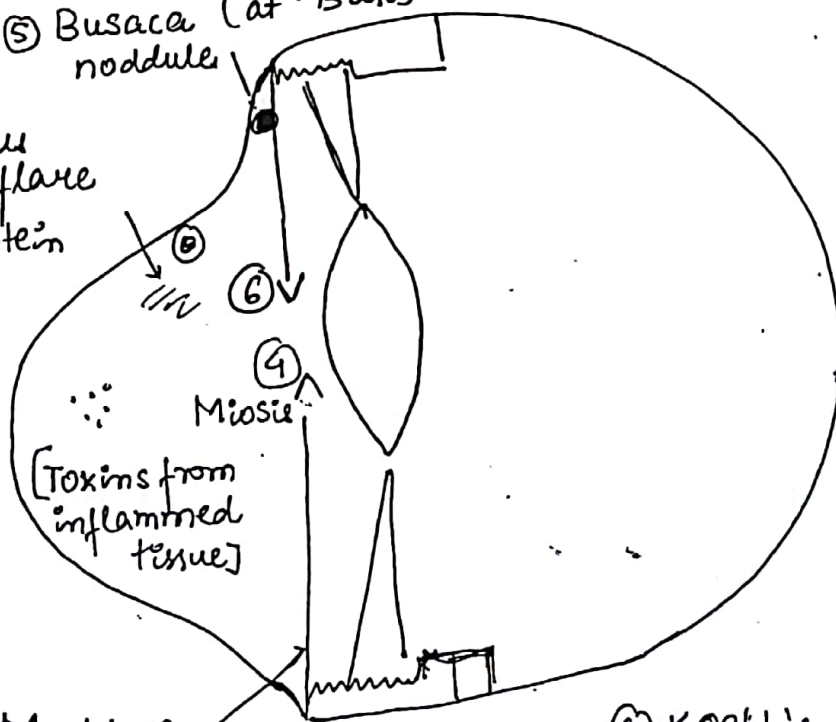 ⑤ Busaca (at
noddule
flare
⑥
④
Miosis
[Toxins from
inflammed
tissue]